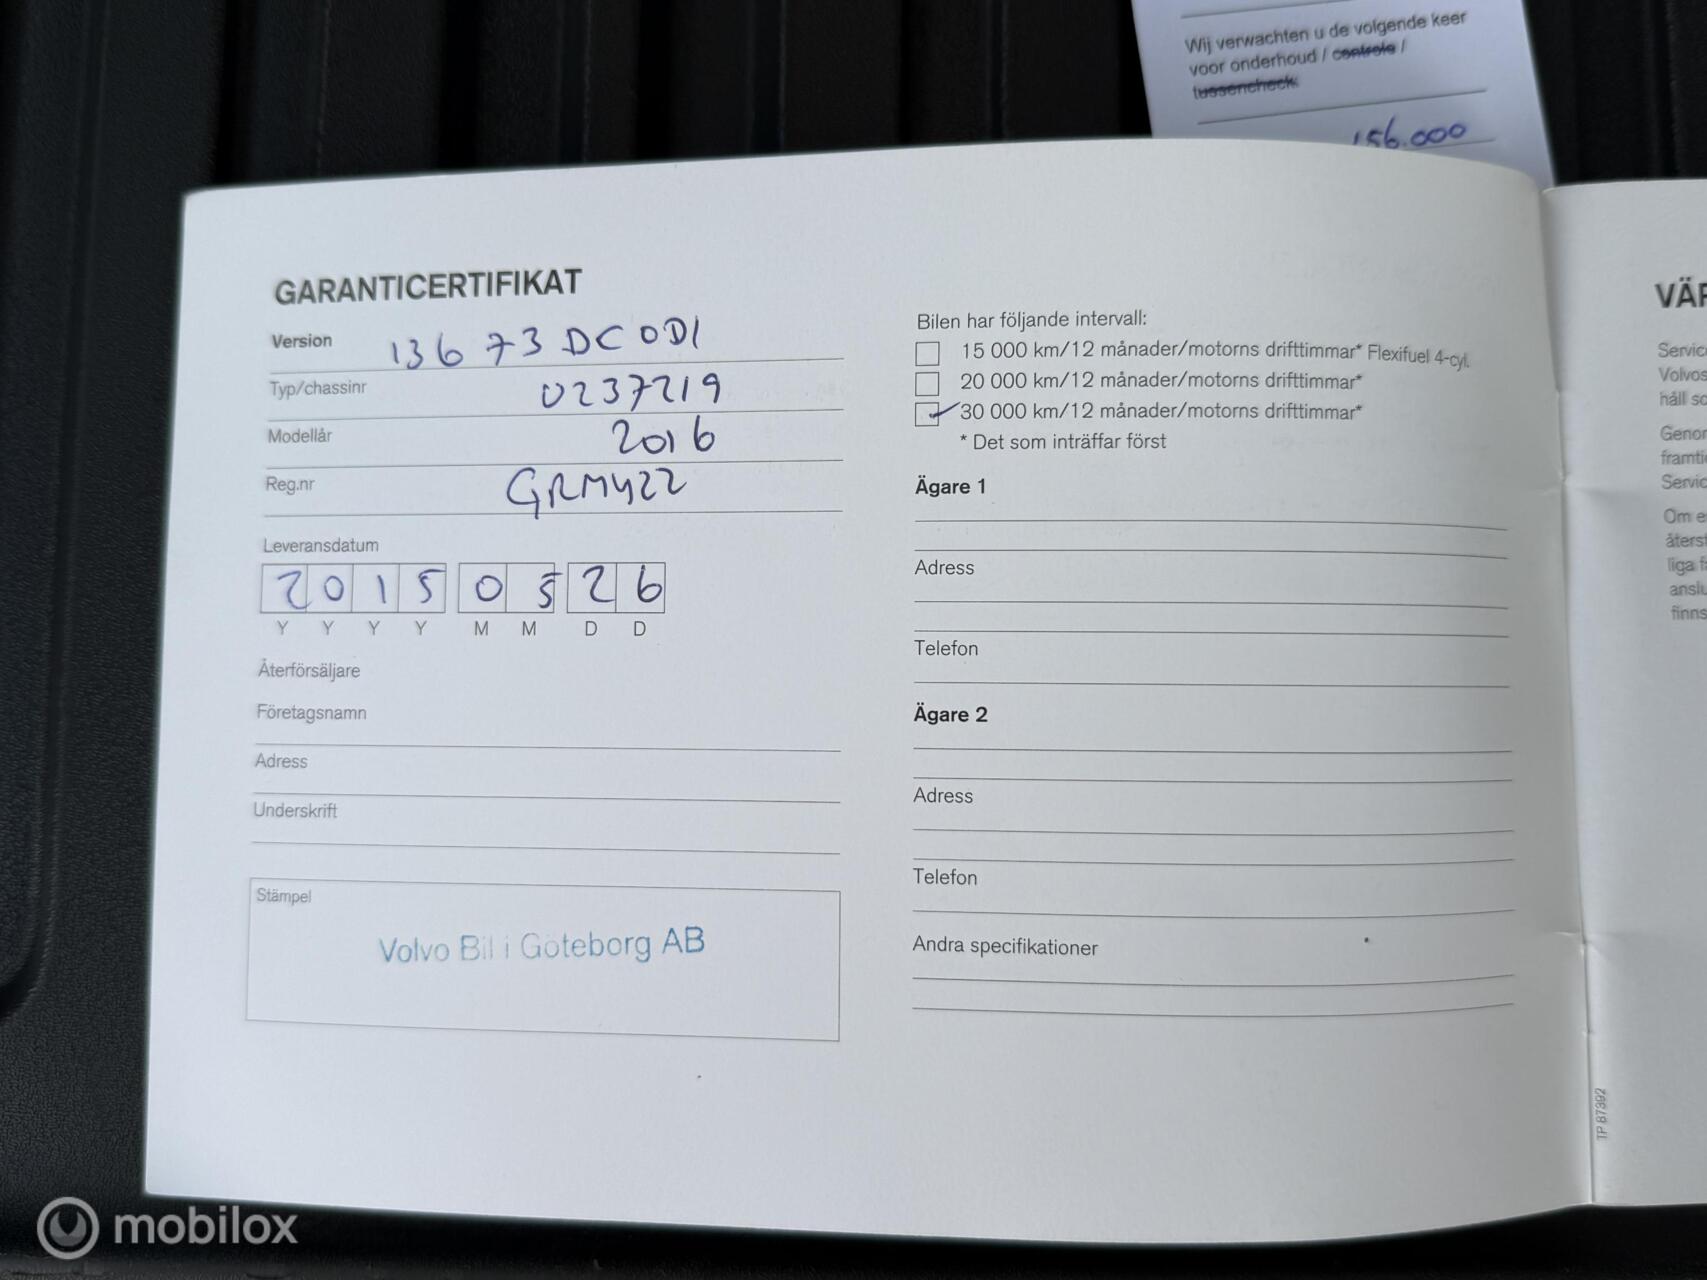 Wij verwachten u de volgende keer
voor onderhoud / controle /
tussencheck:
156.000
GARANTICERTIFIKAT
Version 136 73 DC 0D1
Typ/chassinr 0237219
Modellår 2016
Reg.nr GRM422
Leveransdatum
2015 05 26
Y Y Y Y M M D D
Återförsäljare
Företagsnamn
Adress
Underskrift
Stämpel
Volvo Bil i Göteborg AB
Bilen har följande intervall:
15 000 km/12 månader/motorns drifttimmar* Flexifuel 4-cyl.
20 000 km/12 månader/motorns drifttimmar*
30 000 km/12 månader/motorns drifttimmar*
* Det som inträffar först
Ägare 1
Adress
Telefon
Ägare 2
Adress
Telefon
Andra specifikationer
TP 87392
Volvos
håll
Om
finns
mobilox